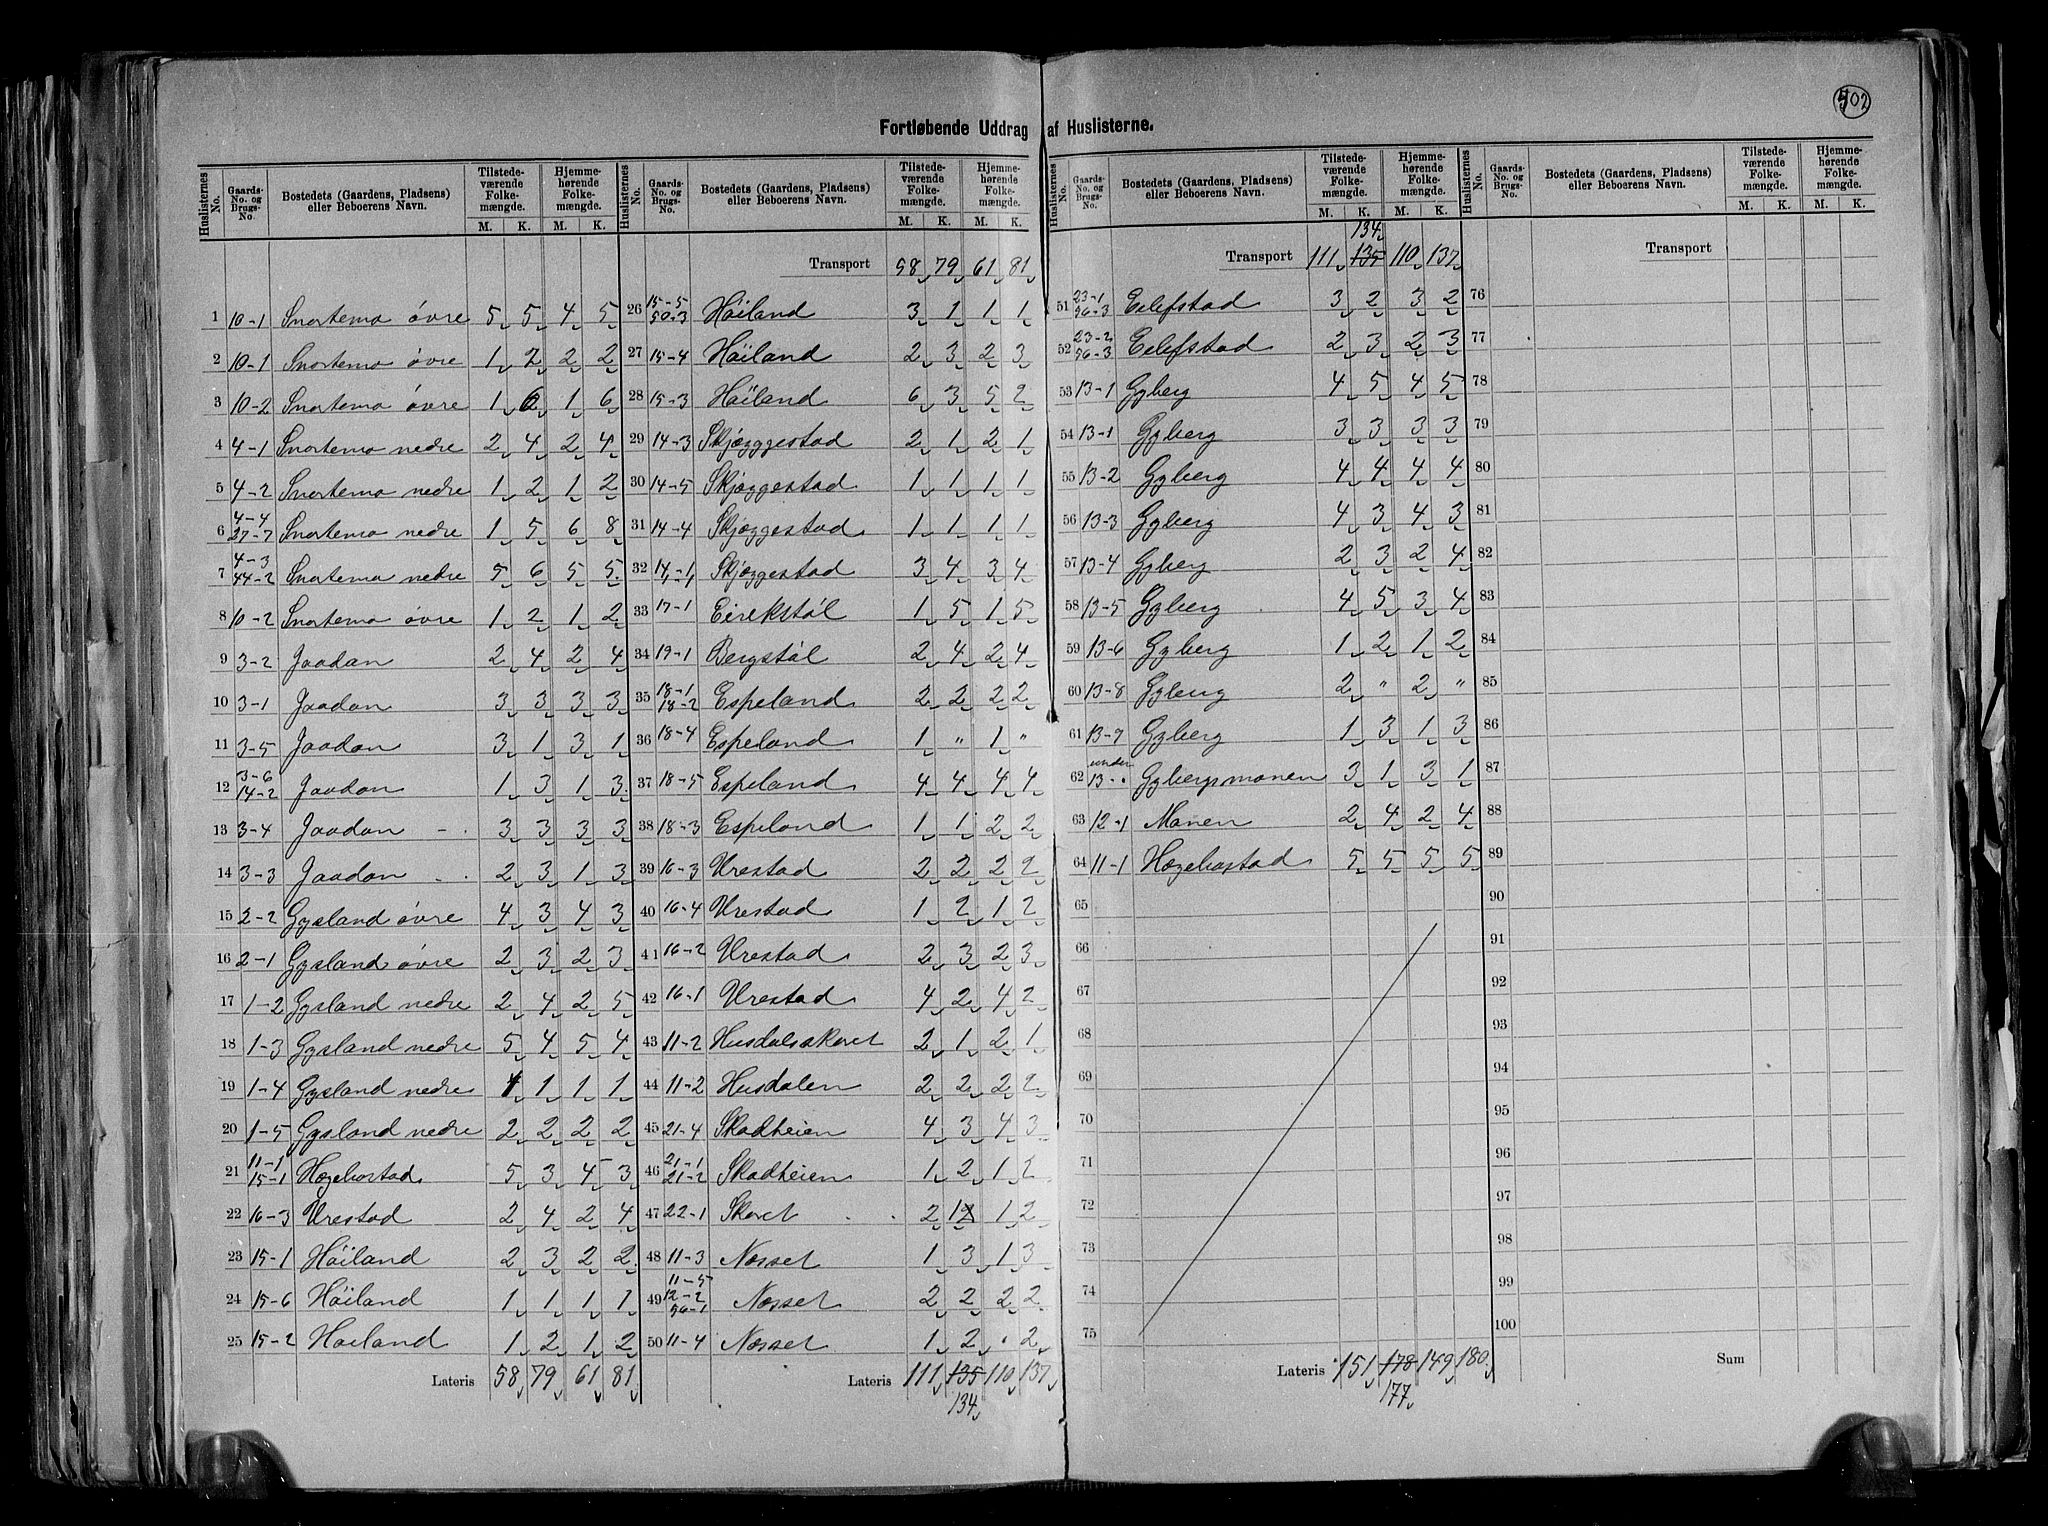 502
Fortløbende Uddrag af Huslisterne.
Huslisternes No. | Gaards-No. og Brugs-No. | Bostedets (Gaardens, Pladsens) eller Beboerens Navn. | Tilstedeværende Folkemængde. M. K. | Hjemmehørende Folkemængde. M. K.
1 10-1 Snartemo övre 5 5 4 5
2 10-1 Snartemo övre 1 2 2 2
3 10-2 Snartemo övre 1 6 1 6
4 4-1 Snartemo nedre 2 4 2 4
5 4-2 Snartemo nedre 1 2 1 2
6 4-4 27-7 Snartemo nedre 1 5 6 8
7 4-3 44-2 Snartemo nedre 5 6 5 5
8 10-2 Snartemo övre 1 2 1 2
9 3-2 Jaadan 2 4 2 4
10 3-1 Jaadan 3 3 3 3
11 3-5 Jaadan 3 1 3 1
12 3-6 14-2 Jaadan 1 3 1 3
13 3-4 Jaadan 3 3 3 3
14 3-3 Jaadan 2 3 1 3
15 2-2 Gysland övre 4 3 4 3
16 2-1 Gysland övre 2 3 2 3
17 1-2 Gysland nedre 2 4 2 5
18 1-3 Gysland nedre 5 4 5 4
19 1-4 Gysland nedre 1 1 1 1
20 1-5 Gysland nedre 2 2 2 2
21 11-1 15-1 Hægebostad 5 3 4 3
22 16-3 Urestad 2 4 2 4
23 15-1 Höiland 2 3 2 2
24 15-6 Höiland 1 1 1 1
25 15-2 Höiland 1 2 1 2
Lateris 58 79 61 81
Huslisternes No. | Gaards-No. og Brugs-No. | Bostedets (Gaardens, Pladsens) eller Beboerens Navn. | Tilstedeværende Folkemængde. M. K. | Hjemmehørende Folkemængde. M. K.
Transport 58 79 61 81
26 15-5 50-3 Höiland 3 1 1 1
27 15-4 Höiland 2 3 2 3
28 15-3 Höiland 6 3 5 2
29 14-3 Skjæggestad 2 1 2 1
30 14-5 Skjæggestad 1 1 1 1
31 14-4 Skjæggestad 1 1 1 1
32 14-1 Skjæggestad 3 4 3 4
33 17-1 Eirekstöl 1 5 1 5
34 19-1 Bergstöl 2 4 2 4
35 18-1 18-2 Espeland 2 2 2 2
36 18-4 Espeland 1 " 1 "
37 18-5 Espeland 4 4 4 4
38 18-3 Espeland 1 1 2 2
39 16-3 Urestad 2 2 2 2
40 16-4 Urestad 1 2 1 2
41 16-2 Urestad 2 3 2 3
42 16-1 Urestad 4 2 4 2
43 11-2 Husdalsskaret 2 1 2 1
44 11-2 Husdalen 2 2 2 2
45 21-4 Skadheien 4 3 4 3
46 21-1 21-2 Skadheien 1 2 1 2
47 22-1 Skaret 2 1 1 2
48 11-3 Næsset 1 3 1 3
49 11-5 12-2 56-1 Næsset 2 2 2 2
50 11-4 Næsset 1 2 · 2
Lateris 111 135 110 137
134
Huslisternes No. | Gaards-No. og Brugs-No. | Bostedets (Gaardens, Pladsens) eller Beboerens Navn. | Tilstedeværende Folkemængde. M. K. | Hjemmehørende Folkemængde. M. K.
134
Transport 111 135 110 137
51 23-1 56-3 Eilefstad 3 2 3 2
52 23-2 56-3 Eilefstad 2 3 2 3
53 13-1 Gyberg 4 5 4 5
54 13-1 Gyberg 3 3 3 3
55 13-2 Gyberg 4 4 4 4
56 13-3 Gyberg 4 3 4 3
57 13-4 Gyberg 2 3 2 4
58 13-5 Gyberg 4 5 3 4
59 13-6 Gyberg 1 2 1 2
60 13-8 Gyberg 2 " 2 "
61 13-7 Gyberg 1 3 1 3
62 under 13-· Gybergsmonen 3 1 3 1
63 12-1 Monen 2 4 2 4
64 11-1 Hægebostad 5 5 5 5
65
66
67
68
69
70
71
72
73
74
75
Lateris 151 178 149 180
177
Huslisternes No. | Gaards-No. og Brugs-No. | Bostedets (Gaardens, Pladsens) eller Beboerens Navn. | Tilstedeværende Folkemængde. M. K. | Hjemmehørende Folkemængde. M. K.
Transport
76
77
78
79
80
81
82
83
84
85
86
87
88
89
90
91
92
93
94
95
96
97
98
99
100
Sum